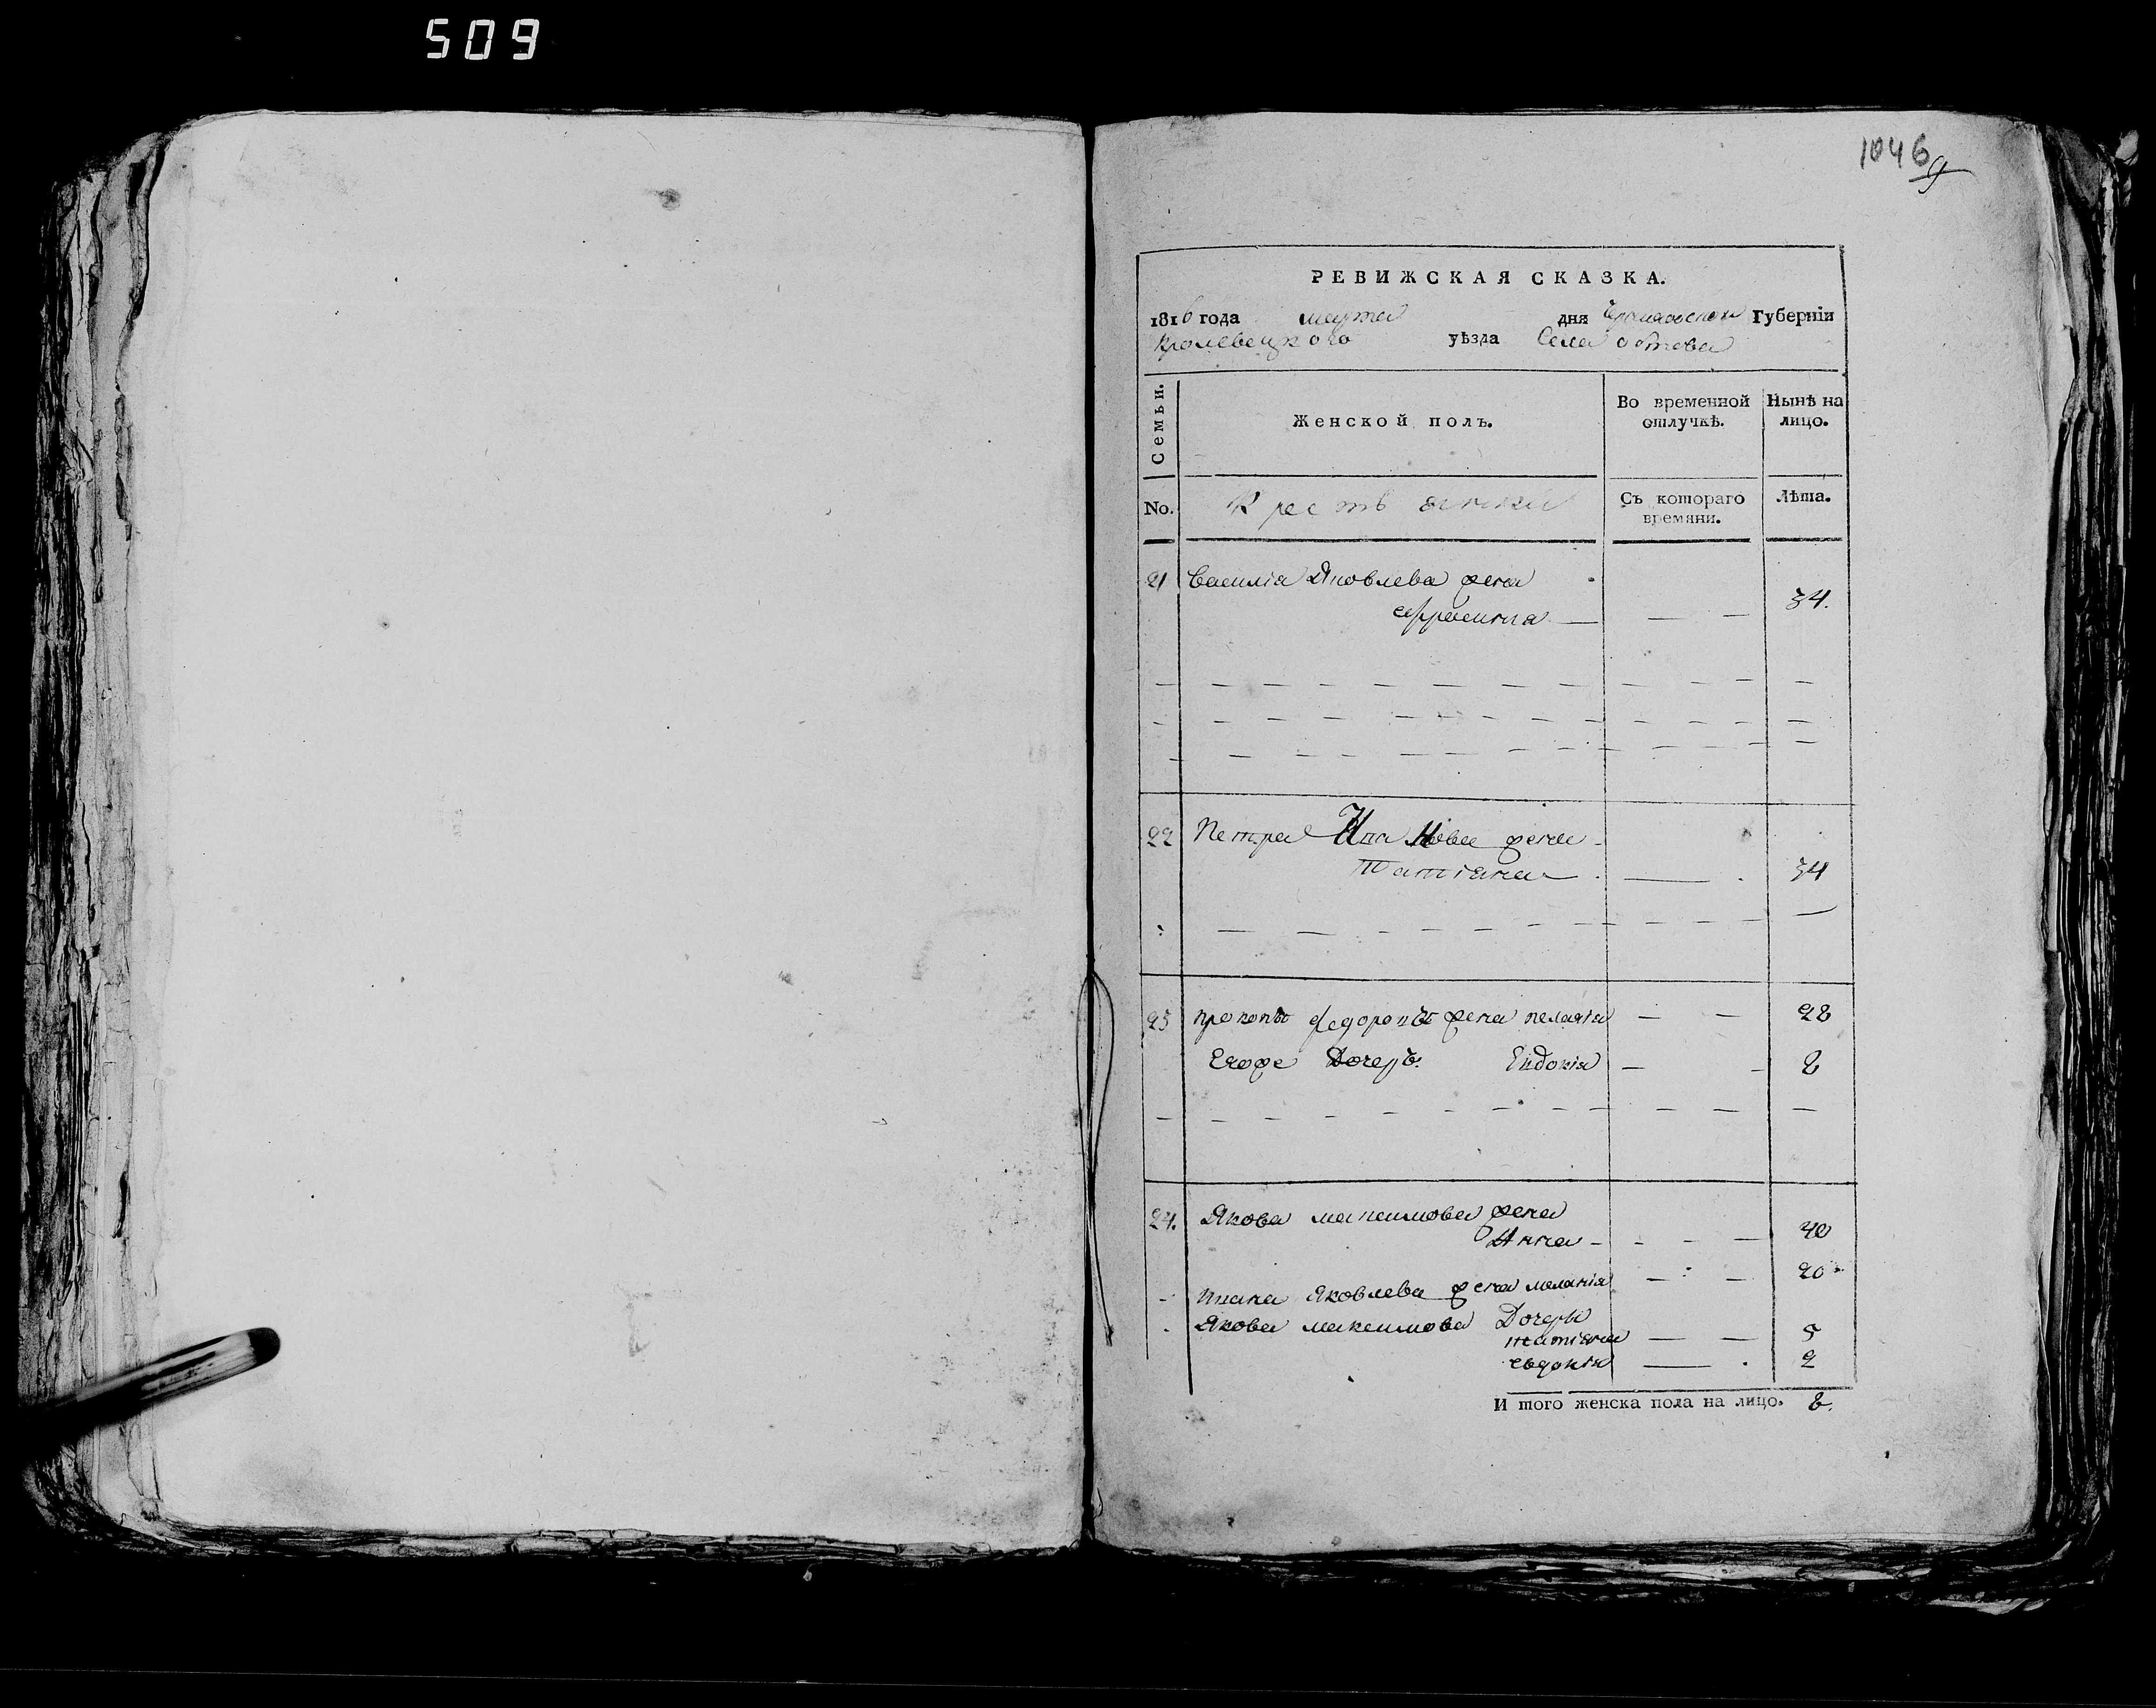 509
1046
РЕВИЖСКАЯ СКАЗКА.
1816 года марта дня Черниговской Губернїи
Кролевецкого уѣзда Села обтова
Семьи.
Женской полъ.
Во временной отлучкѣ.
Нынѣ на лицо.
No.
Крестьянки
Съ котораго времяни.
Лѣта.
21 Василїа Яковлева жена
ефросинїа — 34.
22 Петра Ивановва жена
Татїана 34
23 прокопа федорова жена пелагїа 28
Егоже Дочерь Евдокїа 8
24. Якова максимова жена
Анна 40
Ивана Яковлева жена меланїа 20
Якова максимова Дочери
татїана 5
евдокїа 2
И того женска пола на лицо. 8.